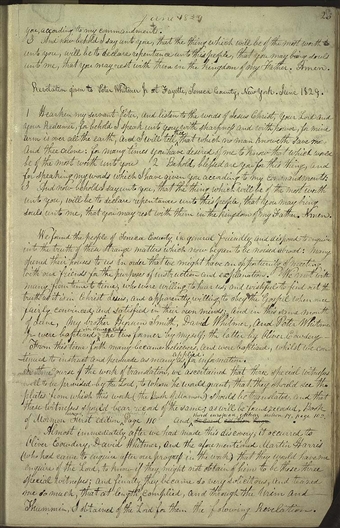 June 1829
23
you, according to my commandments.
3 And now behold I say unto you, that the thing which will be of the most worth
unto you, will be to declare repentance unto this people, that you may bring souls
unto me, that you may rest with them in the Kingdom of my Father. Amen.
Revelation given to Peter Whitmer Jr. at Fayette, Seneca County, New York. June 1829.
1 Hearken my servant Peter, and listen to the words of Jesus Christ, your Lord and
your Redeemer, for behold I speak unto you with sharpness and with power, for mine
arm is over all the earth, and I will tell you that which no man knoweth save me
and thee alone: for many times you have desired of me to know that which would
be of the most worth unto you. 2 Behold, blessed are you for this thing, and
for speaking my words which I have given you according to my commandments:
3 And now behold I say unto you, that the thing which will be of the most worth
unto you, will be to declare repentance unto this people, that you may bring
souls unto me, that you may rest with them in the Kingdom of my Father. Amen.
We found the people of Seneca County in general friendly and disposed to enquire
into the truth of these strange matters which now began to be noised abroad: Many
opened their houses to us in order that we might have an opportunity of meeting
with our friends for the purposes of instruction and explanation. We met with
many from time to time, who were willing to hear us, and wishful to find out the
truth as it is in Christ Jesus, and apparently willing to obey the Gospel when once
fairly convinced and satisfied in their own minds; and in this same month
of June, My brother Hyrum Smith, David Whitmer, and Peter Whitmer
Jr. were baptized in Seneca lake, the two former by myself, the latter by Oliver Cowdery.
From this time forth many became believers, and were baptized, whilst we con-
tinued to instruct and persuade as many as applied for information.
In the course of the work of translation, we ascertained that three special witnesses
were to be provided by the Lord, to whom he would grant, that they should see the
plates from which this work (the Book of Mormon) should be translated, and that
these witnesses should bear record of the same, as will be found recorded, Book
of Mormon First edition, Page and
Almost immediately after we had made this discovery, it occurred to
Oliver Cowdery, David Whitmer, and the aforementioned Martin Harris
(who had came to enquire after our progress in the work) that they would have me
enquire of the Lord, to know if they might not obtain of him to be these three
special witnesses; and finally they became so very solicitous, and teased
me so much, that at length I complied, and through the Urim and
Thummin, I obtained of the Lord for them the following Revelation.